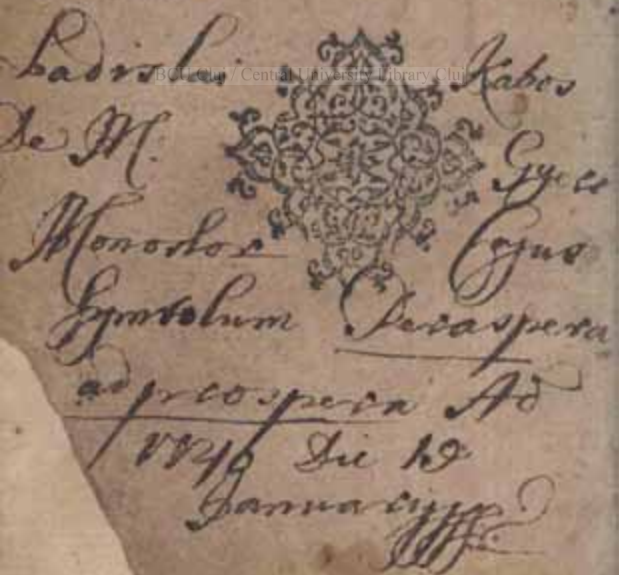 BCU Cluj / Central University Library Cluj
Ladislai Kabos
De M. Gyerő
Monostor Cujus
Symbolum Per aspera
ad prospera Ad
Die 19
Januarij